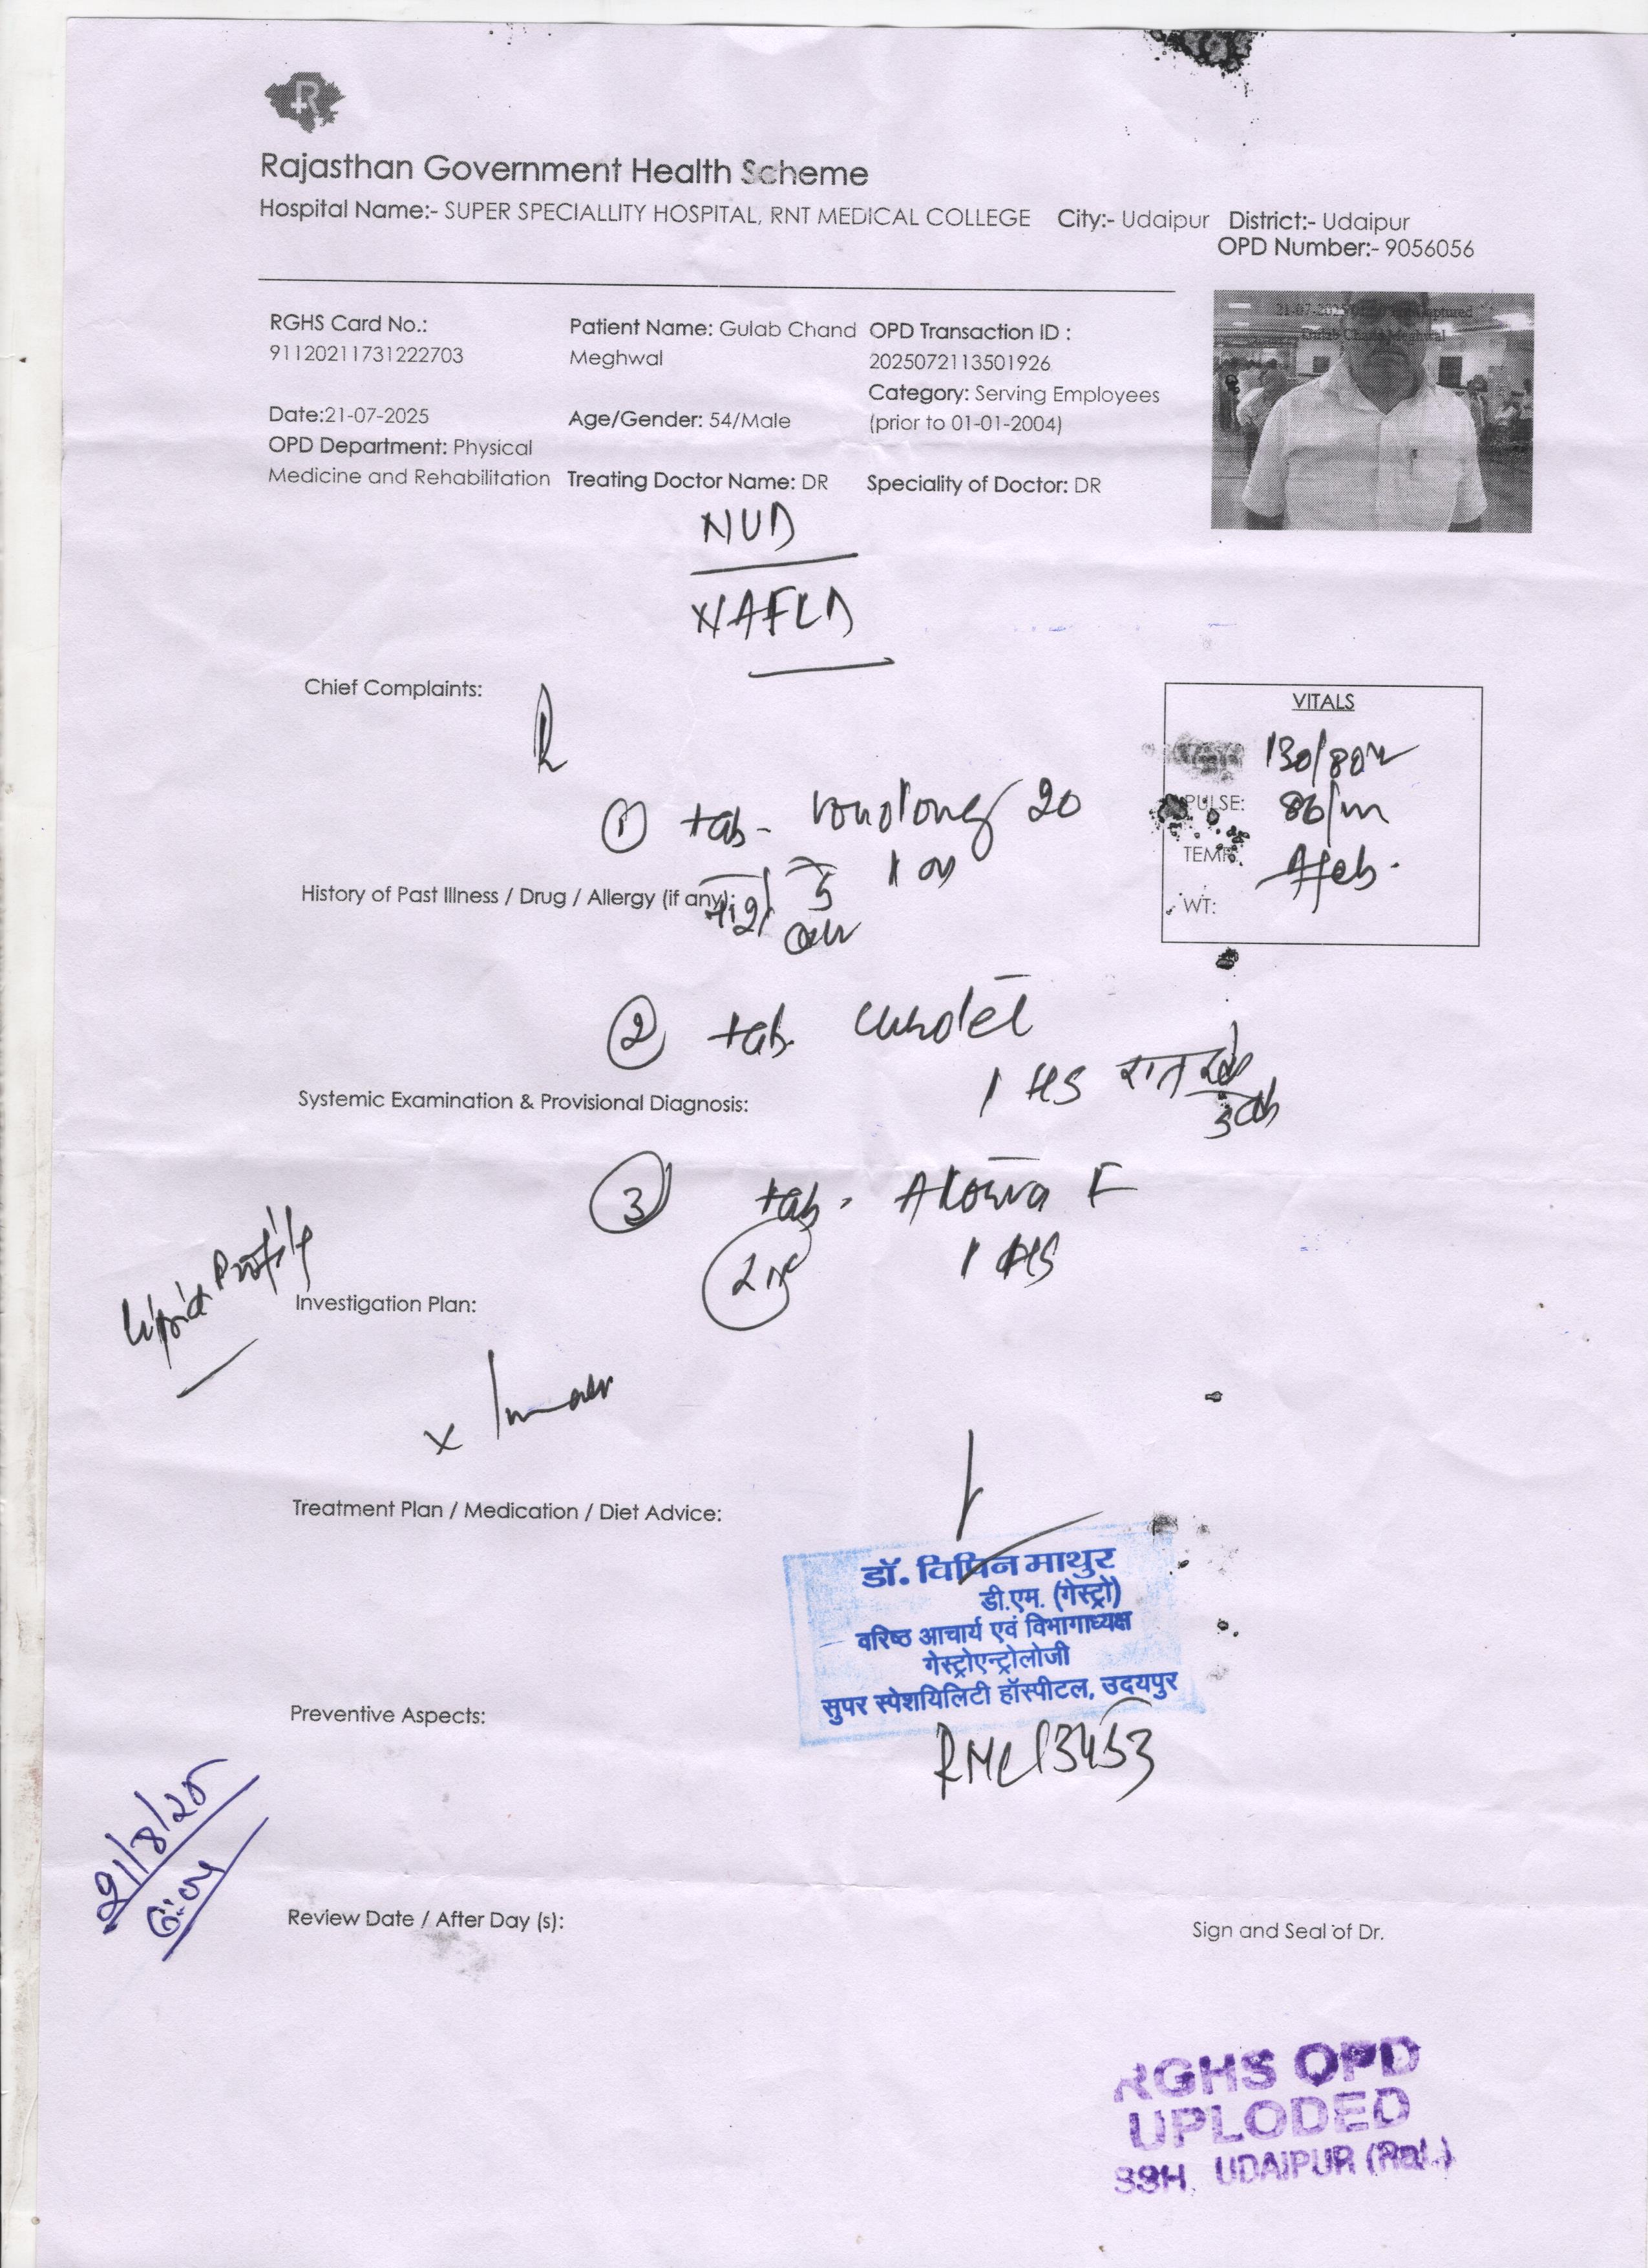 Rajasthan Government Health Scheme
Hospital Name:- SUPER SPECIALLITY HOSPITAL, RNT MEDICAL COLLEGE City:- Udaipur District:- Udaipur
OPD Number:- 9056056
RGHS Card No.:
91120211731222703
Patient Name: Gulab Chand
Meghwal
OPD Transaction ID :
2025072113501926
Category: Serving Employees
(prior to 01-01-2004)
Date:21-07-2025
Age/Gender: 54/Male
OPD Department: Physical
Medicine and Rehabilitation
Treating Doctor Name: DR
Speciality of Doctor: DR
21-07-2025
Gulab Chand Meghwal
NUD
NAFLD
Chief Complaints:
VITALS
130/80
PULSE: 86/m
TEMP: Afeb.
WT:
① tab- 20
1 OD
History of Past Illness / Drug / Allergy (if any):
② tab.
1 HS रात
Systemic Examination & Provisional Diagnosis:
③ tab. F
1 HS
Lipid Profile
Investigation Plan:
Treatment Plan / Medication / Diet Advice:
डॉ. विपिन माथुर
डी.एम. (गेस्ट्रो)
वरिष्ठ आचार्य एवं विभागाध्यक्ष
गेस्ट्रोएन्ट्रोलोजी
सुपर स्पेशयिलिटी हॉस्पीटल, उदयपुर
Preventive Aspects:
RMC 13453
21/8/25
Review Date / After Day (s):
Sign and Seal of Dr.
RGHS OPD
UPLODED
SSH. UDAIPUR (Raj.)